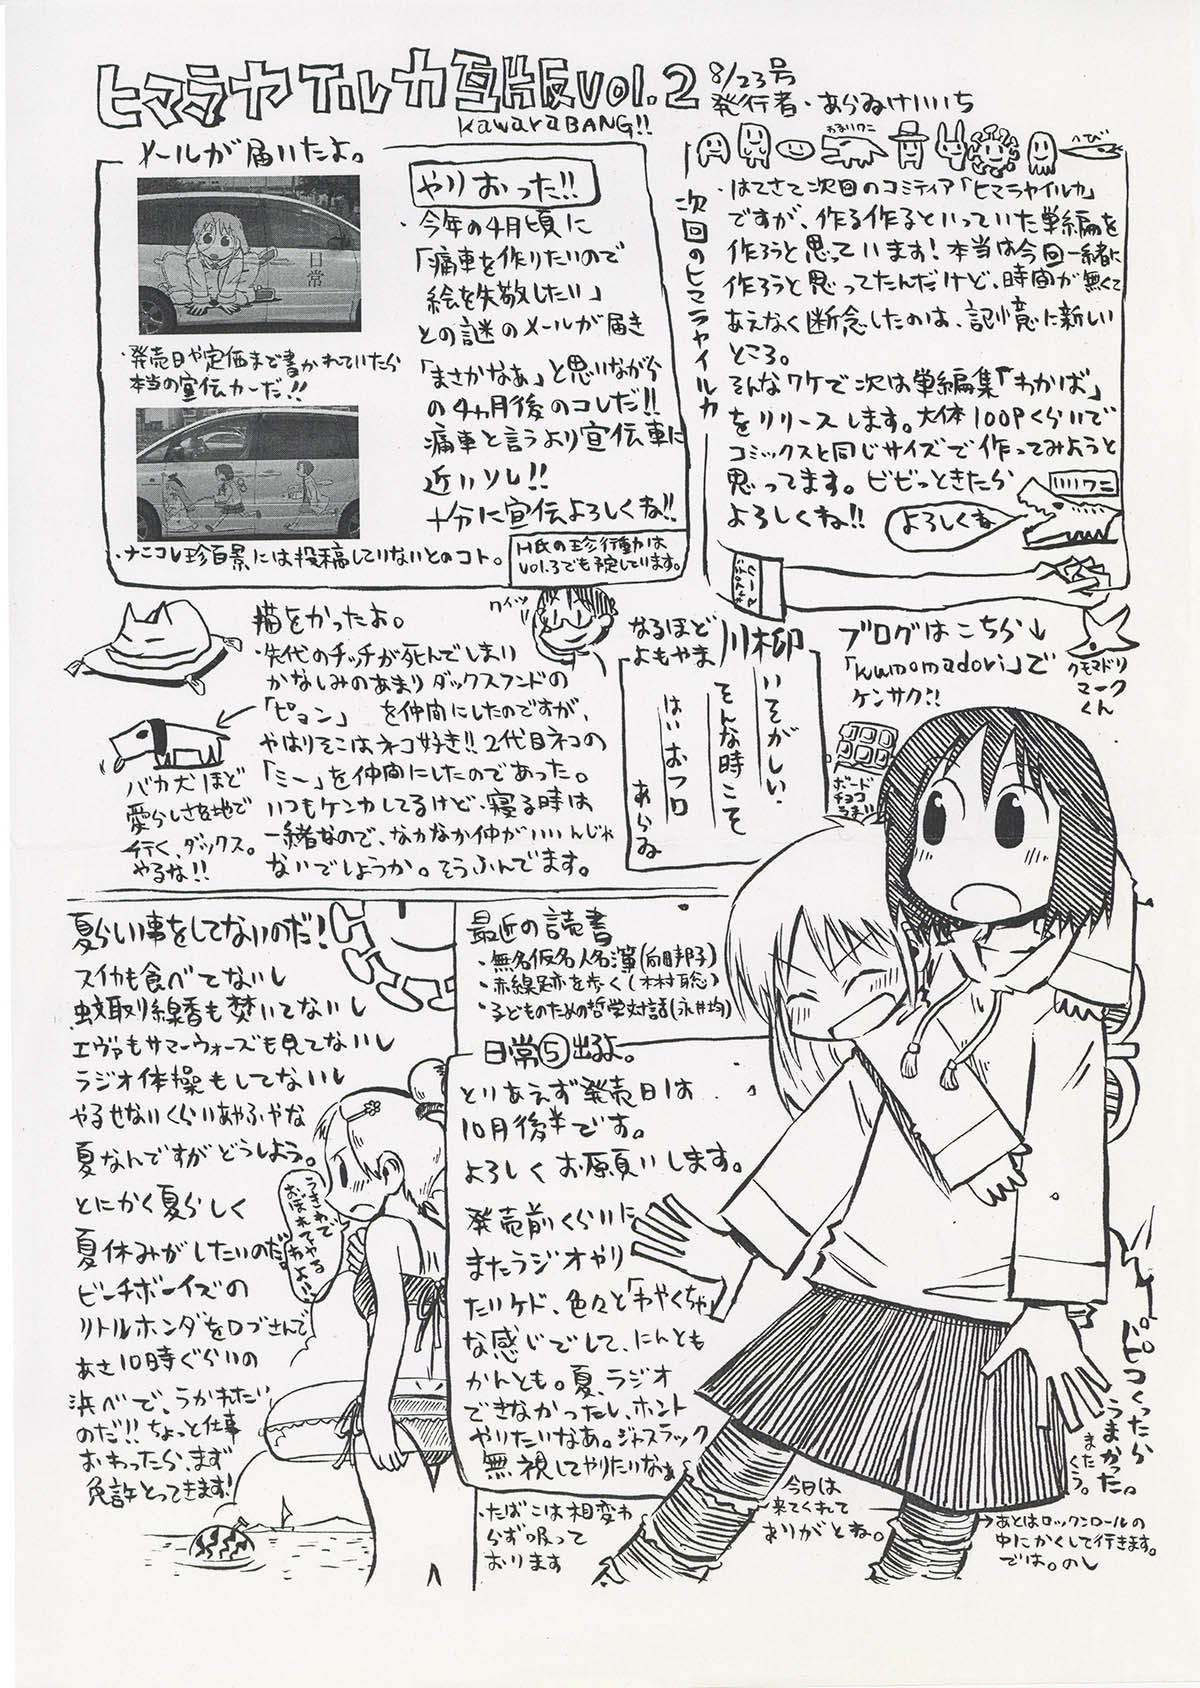 ヒマラヤイルカ瓦版vol.2
kawaraBANG!!
8/23号
発行者・あらゐけいいち
メールが届いたよ。
日常
・発売日や定価まで書かれていたら
本当の宣伝カーだ!!
・ナニコレ珍百景には投稿していないとのコト。
やりおった!!
・今年の4月頃に
「痛車を作りたいので
絵を失敬したい」
との謎のメールが届き
「まさかなぁ」と思いながら
の4ヵ月後のコレだ!!
痛車と言うより宣伝車に
近いソレ!!
十分に宣伝よろしくね!!
H氏の珍行動は
vol.3でも予定しています。
わるいワニ
へび
次回のヒマラヤイルカ
・はてさて次回のコミティア「ヒマラヤイルカ」
ですが、作る作るといっていた単編を
作ろうと思っています!本当は今回一緒に
作ろうと思ってたんだけど、時間が無くて
あえなく断念したのは、記憶に新しい
ところ。
そんなワケで次は単編集「わかば」
をリリースします。大体100Pくらいで
コミックスと同じサイズで作ってみようと
思ってます。ビビっときたら
よろしくね!!
いいワニ
よろしくね
猫をかったよ。
・先代のチッチが死んでしまい
かなしみのあまりダックスフンドの
「ピョン」を仲間にしたのですが、
やはりそこはネコ好き!!2代目ネコの
「ミー」を仲間にしたのであった。
いつもケンカしてるけど、寝る時は
一緒なので、なかなか仲がいいんじゃ
ないでしょうか。そうふんでます。
バカ犬ほど
愛らしさを地で
行く、ダックス。
やるな!!
クイッ
なるほど
よもやま
川柳
いそがしい、
そんな時こそ
はいおフロ
あらゐ
ブログはこちら↓
「kumomadori」で
ケンサク!!
クモマドリ
マーク
くん
ボード
チョコ
うまし
夏らしい事をしてないのだ!
スイカも食べてないし
蚊取り線香も焚いてないし
エヴァもサマーウォーズも見てないし
ラジオ体操もしてないし
やるせないくらいあやふやな
夏なんですがどうしよう。
とにかく夏らしく
夏休みがしたいのだ。
ビーチボーイズの
リトルホンダを口ずさんで
あさ10時ぐらいの
浜べで、うかれたい
のだ!!ちょっと仕事
おわったら、まず
免許とってきます!
うきわで
おぼれてやる
わよ!!
最近の読書
・無名仮名人名簿(向田邦子)
・赤線跡を歩く(木村聡)
・子どものための哲学対話(永井均)
日常⑤出るよ。
とりあえず発売日は
10月後半です。
よろしくお願いします。
発売前くらいに
またラジオやり
たいケド、色々と「わやくちゃ」
な感じでして、にんとも
かんとも。夏、ラジオ
できなかったし、ホント
やりたいなぁ。ジャスラック
無視してやりたいなぁ
・たばこは相変わ
らず吸って
おります
今日は
来てくれて
ありがとね。
ピコくったら
うまかった。
またくう。
→あとはロックンロールの
中にかくして行きます。
では。のし